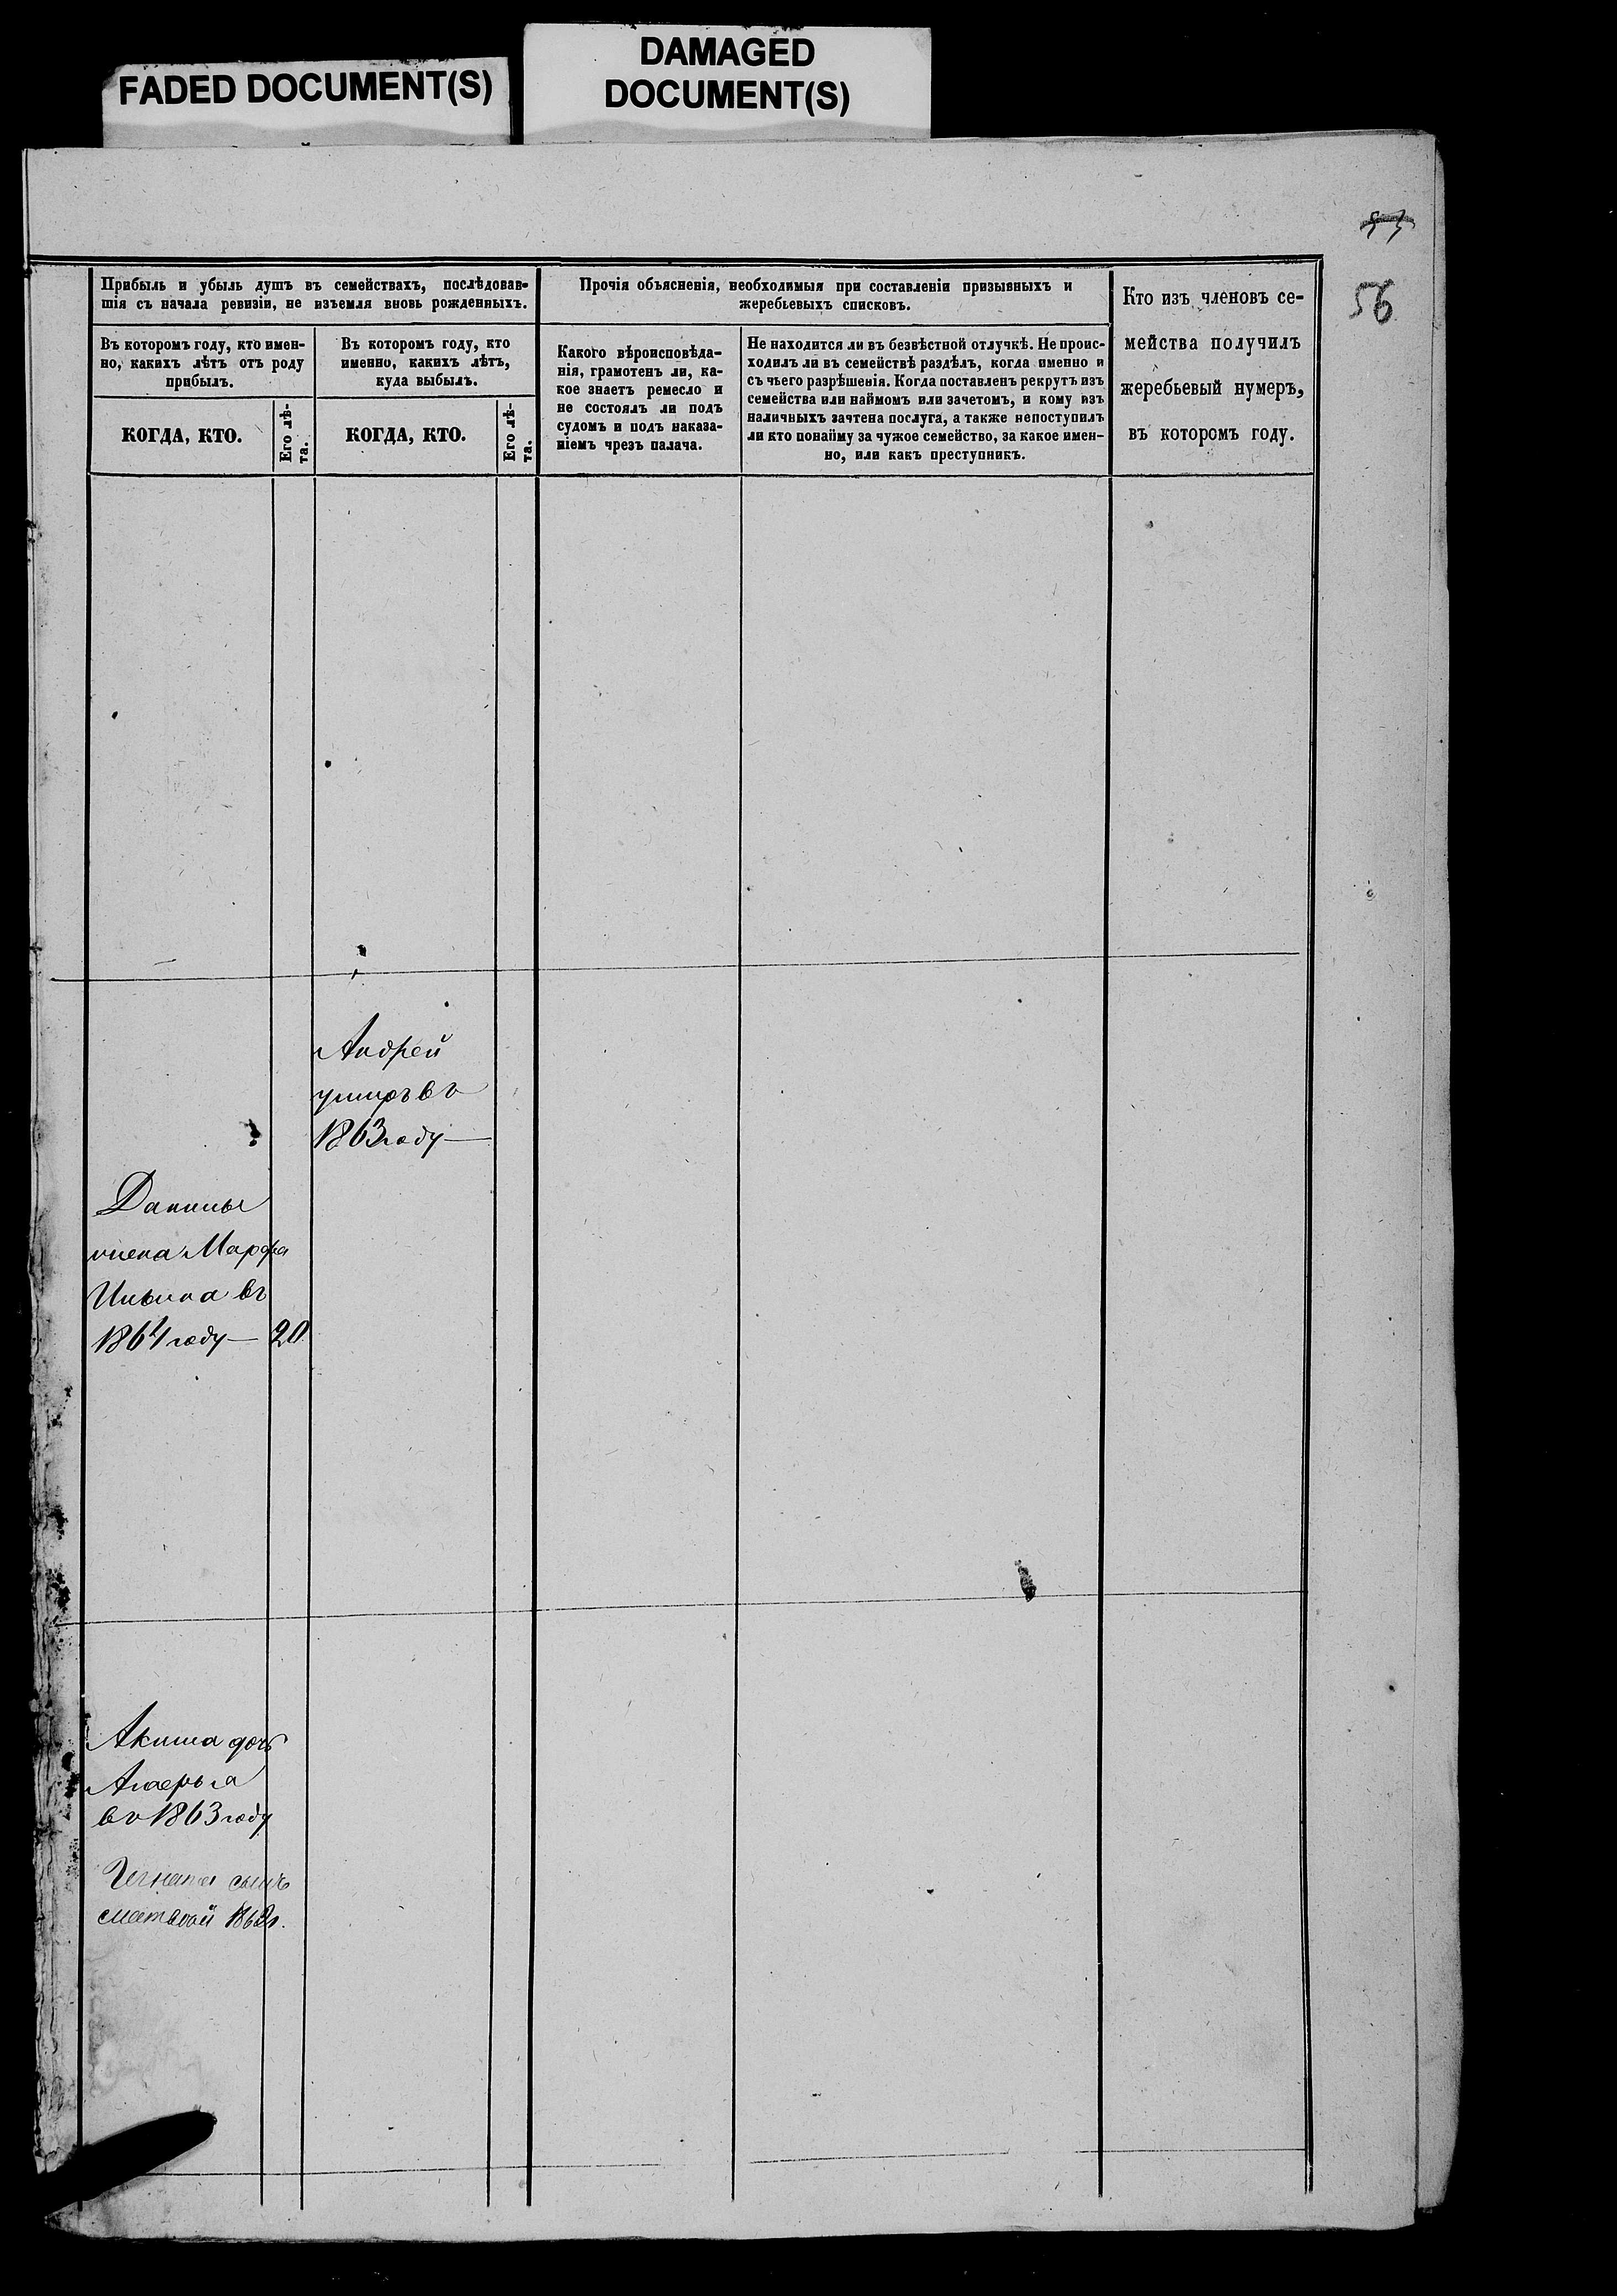 FADED DOCUMENT(S)
DAMAGED
DOCUMENT(S)
56
Прибыль и убыль душъ въ семействахъ, послѣдовав-
шія съ начала ревизіи, не изъемля вновь рожденныхъ.
Въ которомъ году, кто имен-
но, какихъ лѣтъ отъ роду
прибылъ.
КОГДА, КТО.
Его лѣ-
та.
Въ которомъ году, кто
именно, какихъ лѣтъ,
куда выбылъ.
КОГДА, КТО.
Его лѣ-
та.
Прочія объясненія, необходимыя при составленіи призывныхъ и
жеребьевыхъ списковъ.
Какого вѣроисповѣда-
нія, грамотенъ ли, ка-
кое знаетъ ремесло и
не состоялъ ли подъ
судомъ и подъ наказа-
ніемъ чрезъ палача.
Не находится ли въ безвѣстной отлучкѣ. Не проис-
ходилъ ли въ семействѣ раздѣлъ, когда именно и
съ чьего разрѣшенія. Когда поставленъ рекрутъ изъ
семейства или наймомъ или зачетомъ, и кому изъ
наличныхъ зачтена послуга, а также непоступилъ
ли кто понайму за чужое семейство, за какое имен-
но, или какъ преступникъ.
Кто изъ членовъ се-
мейства получилъ
жеребьевый нумеръ,
въ которомъ году.
Андрей
умиръ въ
1863 году —
Данилы
жена Марфа
Ильина въ
1864 году — 20
Акима дочь
въ 1863 году
Игната сынъ
Матвей 1868г.